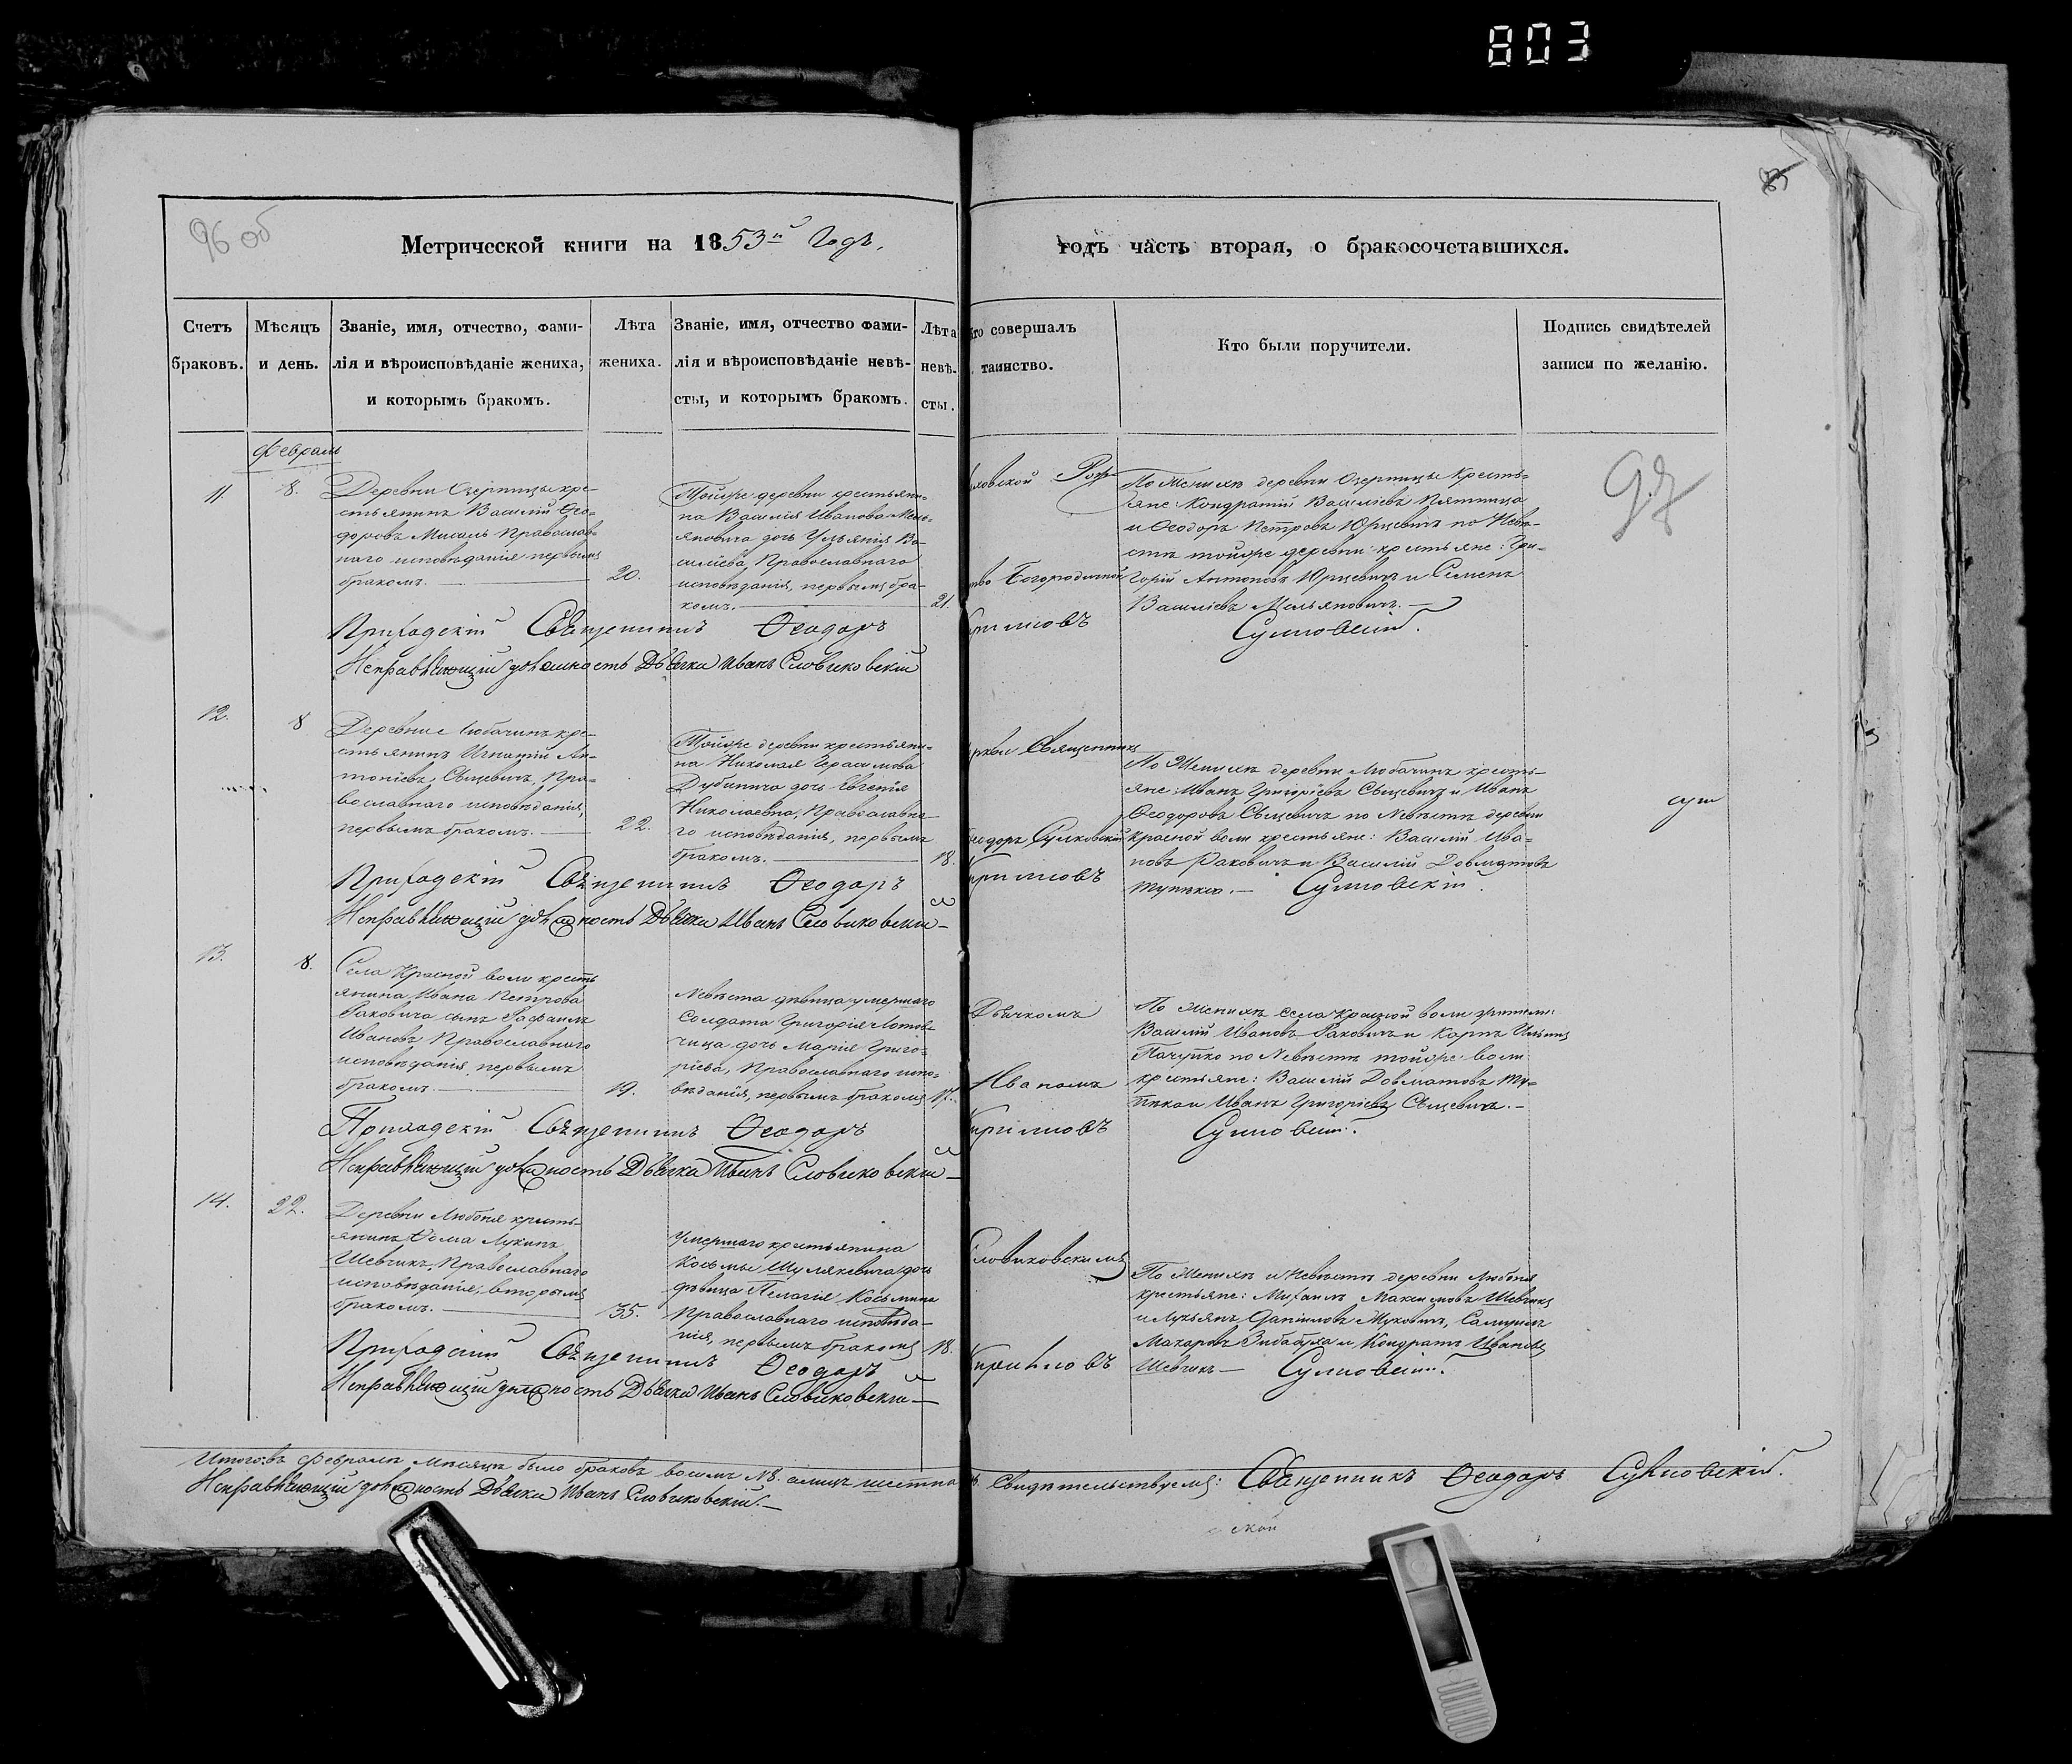 803
96 об
Метрической книги на 1853й Годъ.
годъ часть вторая, о бракосочетавшихся.
Счетъ браковъ.
Мѣсяцъ и день.
Званіе, имя, отчество, фами-
лія и вѣроисповѣданіе жениха,
и которымъ бракомъ.
Лѣта
жениха.
Званіе, имя, отчество фами-
лія и вѣроисповѣданіе невѣ-
сты, и которымъ бракомъ.
Лѣта
невѣ-
сты.
то совершалъ
таинство.
Кто были поручители.
Подпись свидѣтелей
записи по желанію.
Февраль
11.
8.
Деревни Озерницы кре-
стьянинъ Василій Ѳео-
доровъ Мисаль Православ-
наго исповѣданія первымъ
бракомъ.
20.
Тойже деревни крестьяни-
на Василія Иванова Мель-
яновича дочь Ульянія Ва-
силіева, Православнаго
исповѣданія, первымъ бра-
комъ.
21.
ловской Рож
тво Богородичной
По Женихѣ деревни Озерницы Кресть-
яне: Кондратій Васильевъ Пятница
и Ѳеодоръ Петровъ Юрцевичъ по Невѣ-
стѣ тойже деревни крестьяне: Гри-
горій Антоновъ Юрцевичъ и Семенъ
Васильевъ Мельяновичъ.
97
Приходскій Священникъ Ѳеодоръ Кириловъ Сулковскій.
Исправляющій должность Дьячка Иванъ Словиковскій
12.
8
Деревни Любачинъ кре-
стьянинъ Игнатій Ан-
тоніевъ Свѣцевичъ, Пра-
вославнаго исповѣданія,
первымъ бракомъ.
22.
Тойже деревни крестьяни-
на Николая Герасимова
Дубинича дочь Евгенія
Николаевна, Православна-
го исповѣданія, первымъ
бракомъ.
18.
ркви Священникъ
Ѳеодоръ Сулковскій
По Женихѣ деревни Любачинъ кресть-
яне: Иванъ Григоріевъ Свѣцевичъ и Иванъ
Ѳеодоровъ Свѣцевичъ по Невѣстѣ деревни
Красной воли крестьяне: Василій Ива-
новъ Раковичъ и Василій Довматовъ
Приходскій Священникъ Ѳеодоръ Кириловъ Сулковскій.
Исправляющій должность Дьячка Иванъ Словиковскій
13.
8.
Села Красной воли кресть
янина Ивана Петрова
Раковича сынъ Рафаилъ
Ивановъ Православнаго
исповѣданія, первымъ
бракомъ.
19.
Невѣста дѣвица умершаго
Солдата Григорія
дочь Марія Григо-
ріева, Православнаго испо-
вѣданія, первымъ бракомъ
17.
Дьячкомъ
Иваномъ
По Женихѣ села Красной воли
Василій Ивановъ Раковичъ и Карпъ
по Невѣстѣ тойже воли
крестьяне: Василій Довматовъ
и Иванъ Григоріевъ Свѣцевичъ.
Приходскій Священникъ Ѳеодоръ Кириловъ Сулковскій.
Исправляющій должность Дьячка Иванъ Словиковскій
14.
22.
Деревни Любоня кресть-
янинъ Ѳома Лукинъ
Шевчикъ, Православнаго
исповѣданія, вторымъ
бракомъ.
35.
Умершаго крестьянина
Косьмы Шуляковича дочь
дѣвица Пелагія Косьмина
Православнаго исповѣда-
нія, первымъ бракомъ
18.
Словиковскимъ
По Женихѣ и Невѣстѣ деревни Любоня
крестьяне: Михаилъ Максимовъ Шевчикъ
и Лукьянъ Даниловъ Жуковичъ, Самуилъ
Макаровъ и Кондратъ Ивановъ
Шевчикъ
Приходскій Священникъ Ѳеодоръ Кириловъ Сулковскій.
Исправляющій должность Дьячка Иванъ Словиковскій
Итого въ Февралѣ Мѣсяцѣ было браковъ восемь Свидѣтельствуемъ: Священникъ Ѳеодоръ Сулковскій.
Исправляющій должность Дьячка Иванъ Словиковскій.
ской